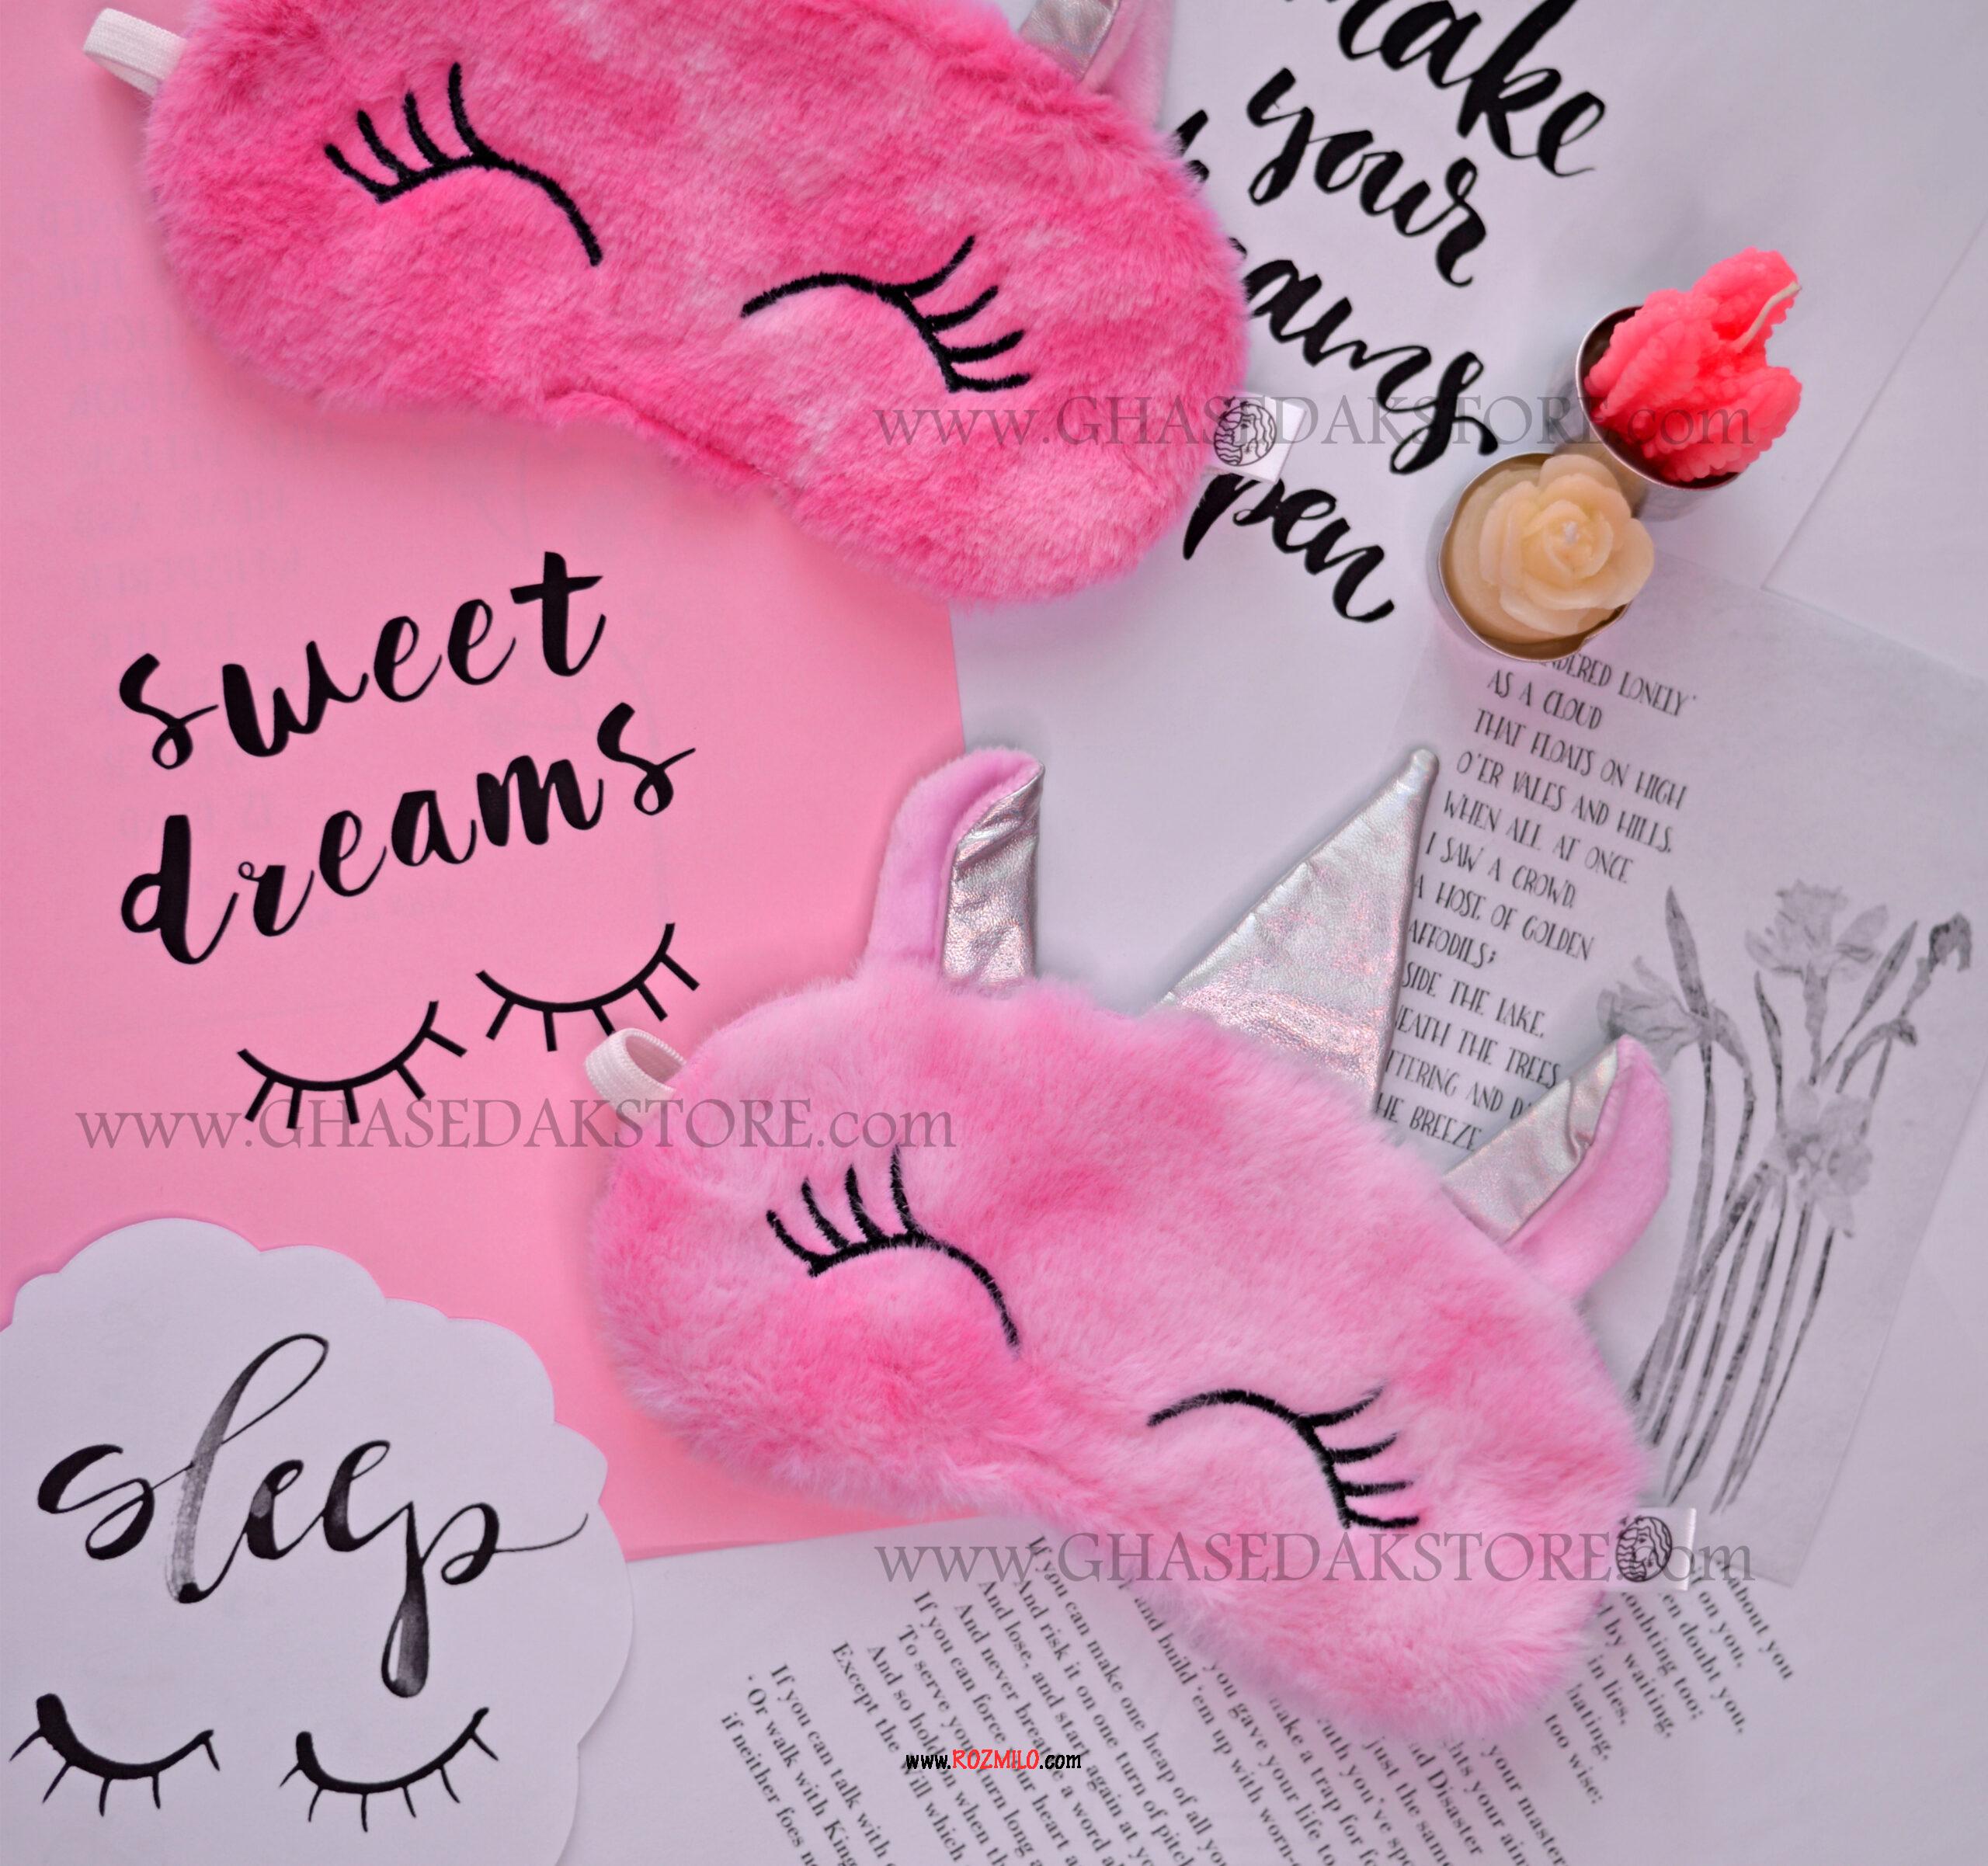 make
your
eams
pen
www.GHASEDAKSTORE.com
sweet
dreams
NDERED LONELY
AS A CLOUD
THAT FLOATS ON HIGH
O'ER VALES AND HILLS,
WHEN ALL AT ONCE
I SAW A CROWD,
A HOST, OF GOLDEN
AFFODILS;
SIDE THE LAKE,
EATH THE TREES
TTERING AND D
HE BREEZE
www.GHASEDAKSTORE.com
sleep
www.GHASEDAKSTORE.com
If you can make one heap of all yo
And risk it on one turn of pitch
And lose, and start again at yo
And never breathe a word a
If you can force your heart a
To serve your turn long a
And so hold on when th
Except the Will which
If you can talk with
Or walk with King
if neither foes n
and build 'em up with worn-
you gave your life to
make a trap for fo
ruth you've spo
just the same
nd Disaster
hts your aim
your master
about you
t on you,
en doubt you,
oubting too;
d by waiting,
in lies,
hating,
too wise:
www.ROZMILO.com